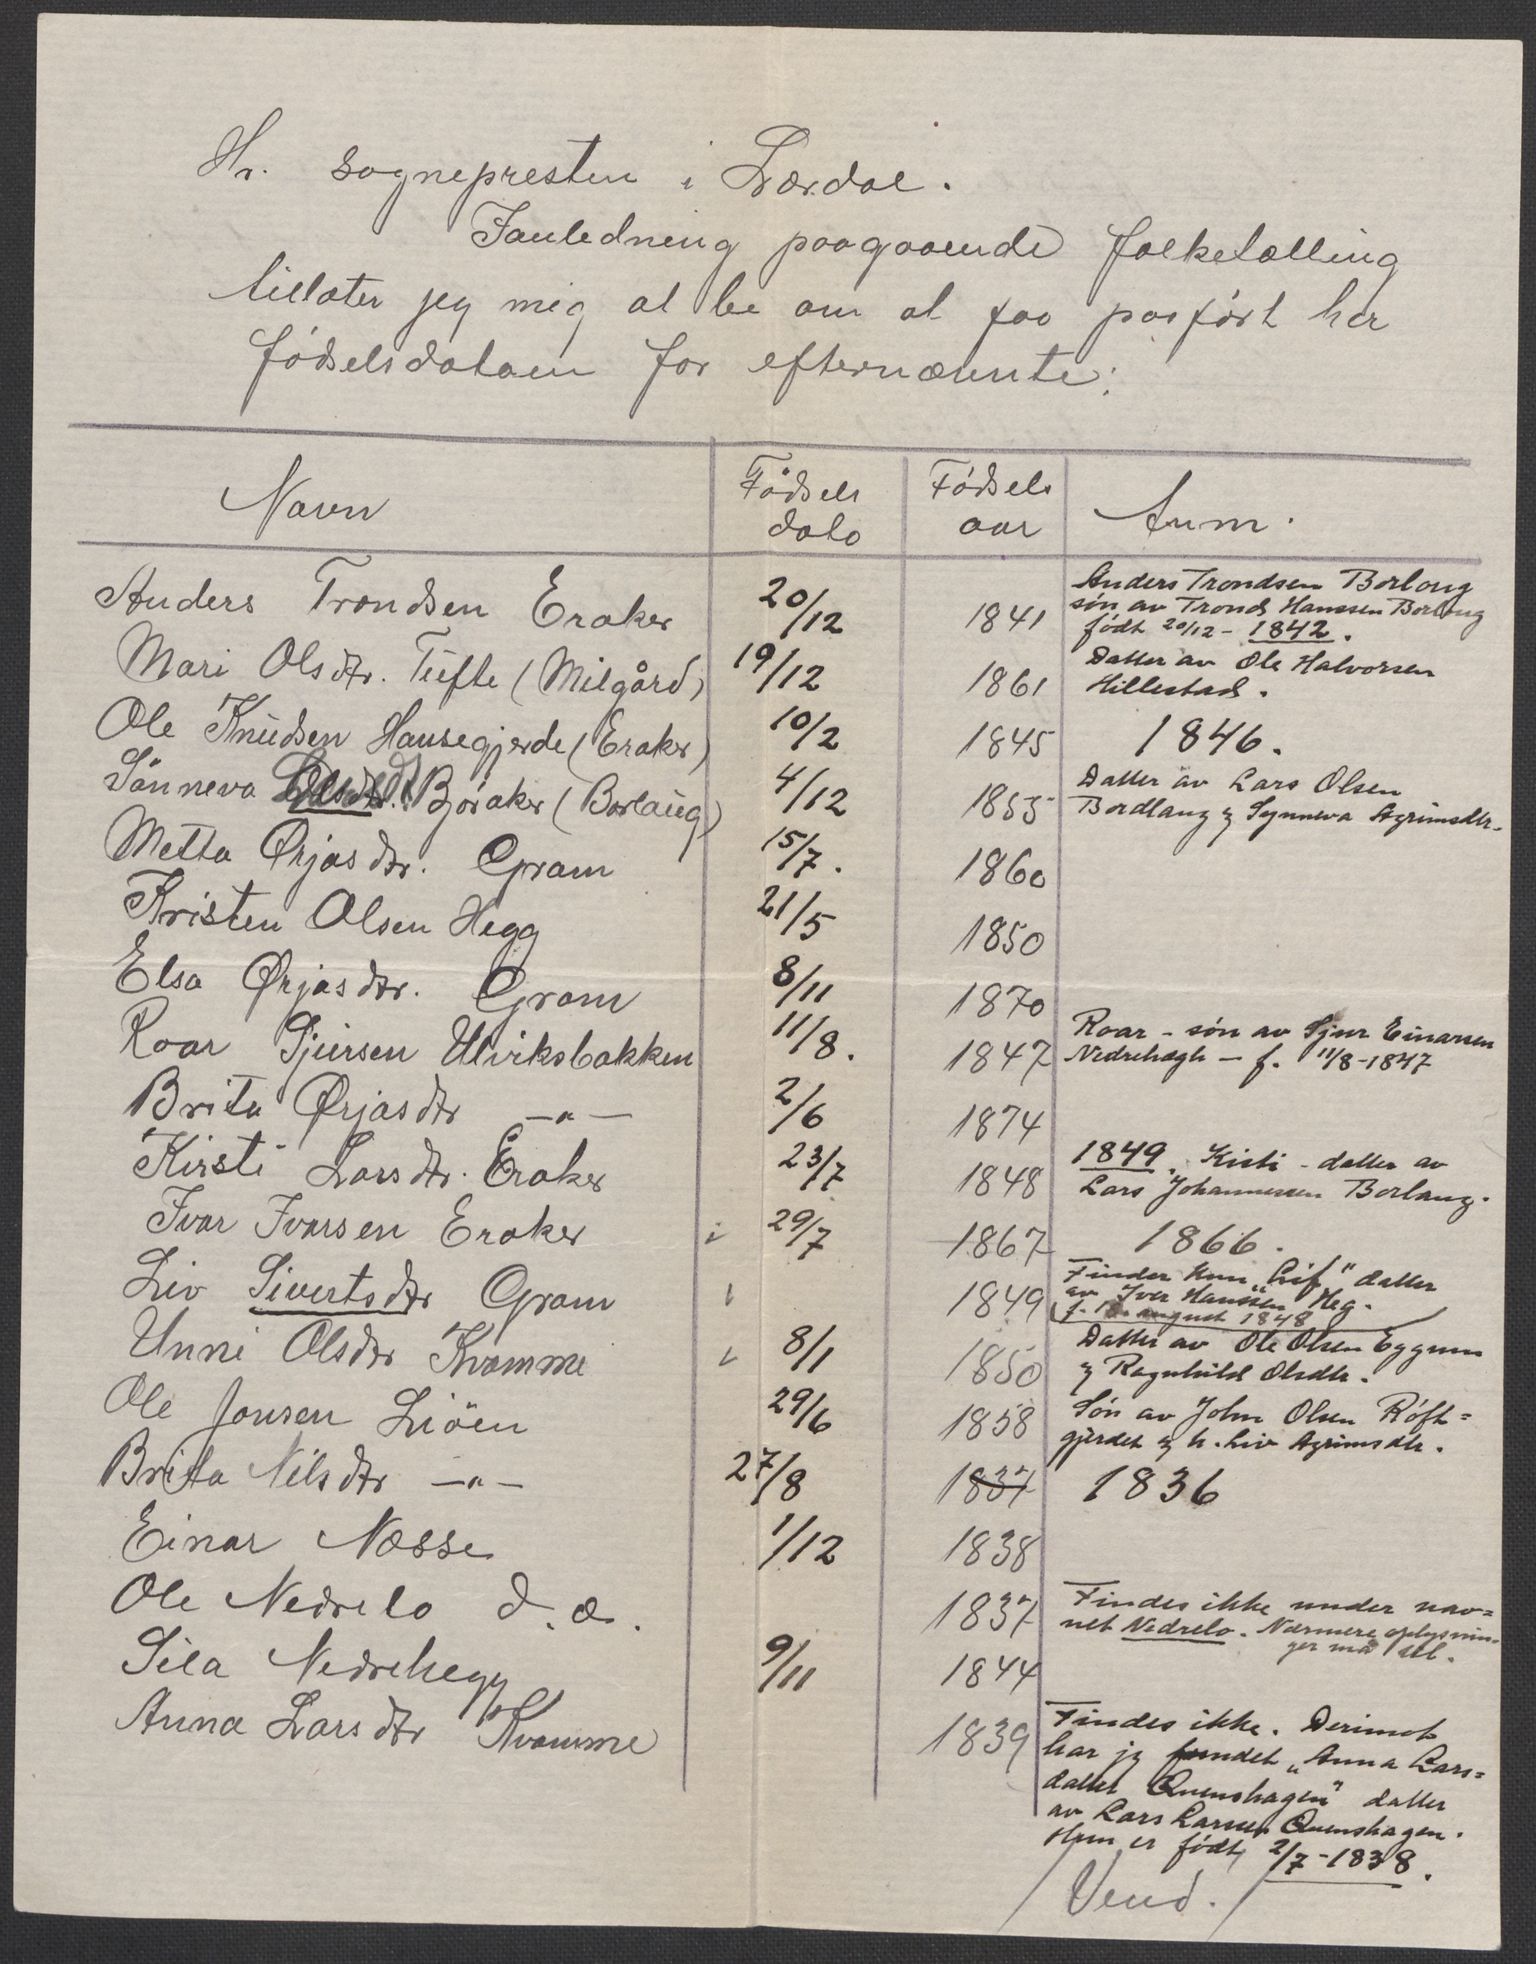 Hr. sognepresten i Lærdal.
Ianledning paagaaende folketælling
tillater jeg mig at be om at faa paaført her
fødselsdataen for efternævnte:
Navn Fødsels dato Fødsels aar Anm.
Anders Trondsen Eraker 20/12 1841 Anders Trondsen Borlaug
søn av Trond Hanssen Borlaug
født 20/12 - 1842.
Mari Olsdtr. Tufte (Milgård) 19/12 1861 Datter av Ole Halvorsen
Hillestad.
Ole Knudsen Hausegjerde (Eraker) 10/2 1845 1846.
Sönneva Björaker (Borlaug) 4/12 1855 Datter av Lars Olsen
Bordlaug & Synneva Agrimsdtr.
Metta Ørjasdtr. Gram 15/7. 1860
Kristen Olsen Hegg 21/5 1850
Elsa Ørjasdtr. Gram 8/11 1870
Roar Sjursen Ulviksbakken 11/8. 1847 Roar - søn av Sjur Einarsen
Nedrehægh - f. 11/8-1847
Brita Ørjasdtr —"— 2/6 1874
Kirsti Larsdtr. Eraker 23/7 1848 1849. Kisti - datter av
Lars Johannessen Borlaug.
Ivar Ivarsen Eraker 29/7 1867 1866.
Liv Sivertsdtr Gram 1849 Finder kun "Lif" datter
av Iver Hanssen Heg.
f. august 1848
Unni Olsdtr Kvamme 8/1 1850 Datter av Ole Olsen Eggum
& Ragnhild Olsdtr.
Ole Jonsen Liöen 29/6 1858 Søn av John Olsen Röft=
gjerdet & h. Liv Agrimsdtr.
Brita Nilsdtr —"— 27/8 1837 1836
Einar Næsse 1/12 1838
Ole Nedrelo d.æ. 1837 Findes ikke under nav=
net Nedrelo. Nærmere oplysnin=
ger må til.
Sila Nedrehegg 9/11 1844
Anna Larsdtr Kvamme 1839 Findes ikke. Derimot
har jeg fundet "Anna Lars=
datter Quenshagen" datter
av Lars Larsen Quenshagen.
Hun er født 2/7-1838.
/Vend./